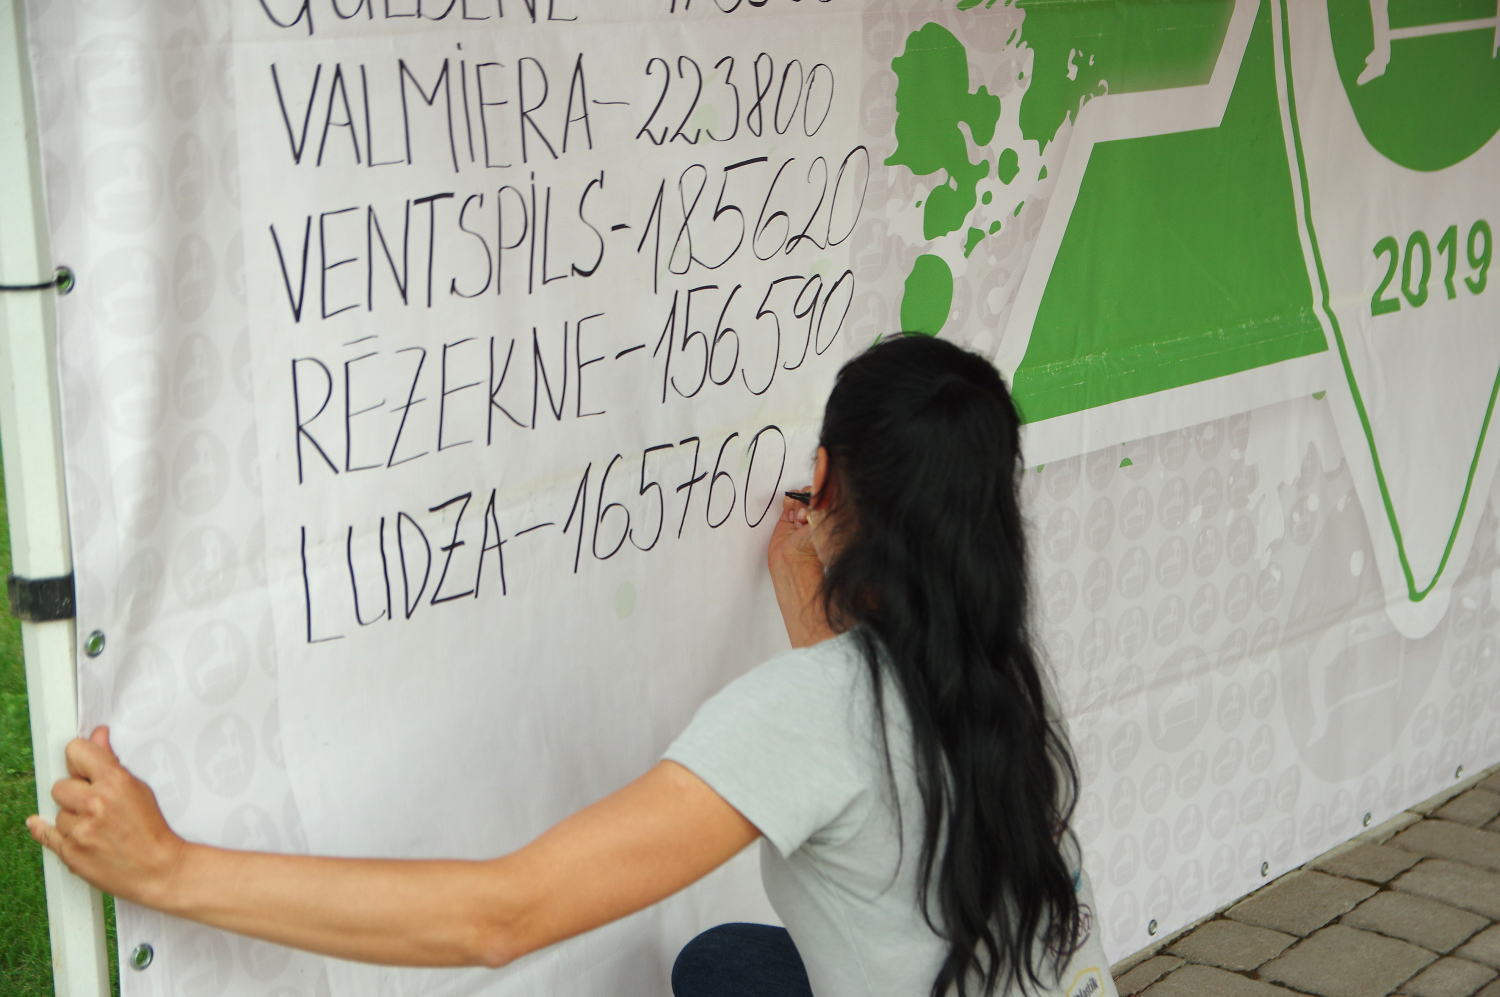 GULBENE
VALMIERA-223800
VENTSPILS-185620
RĒZEKNE-156590
LUDZA-165760
2019